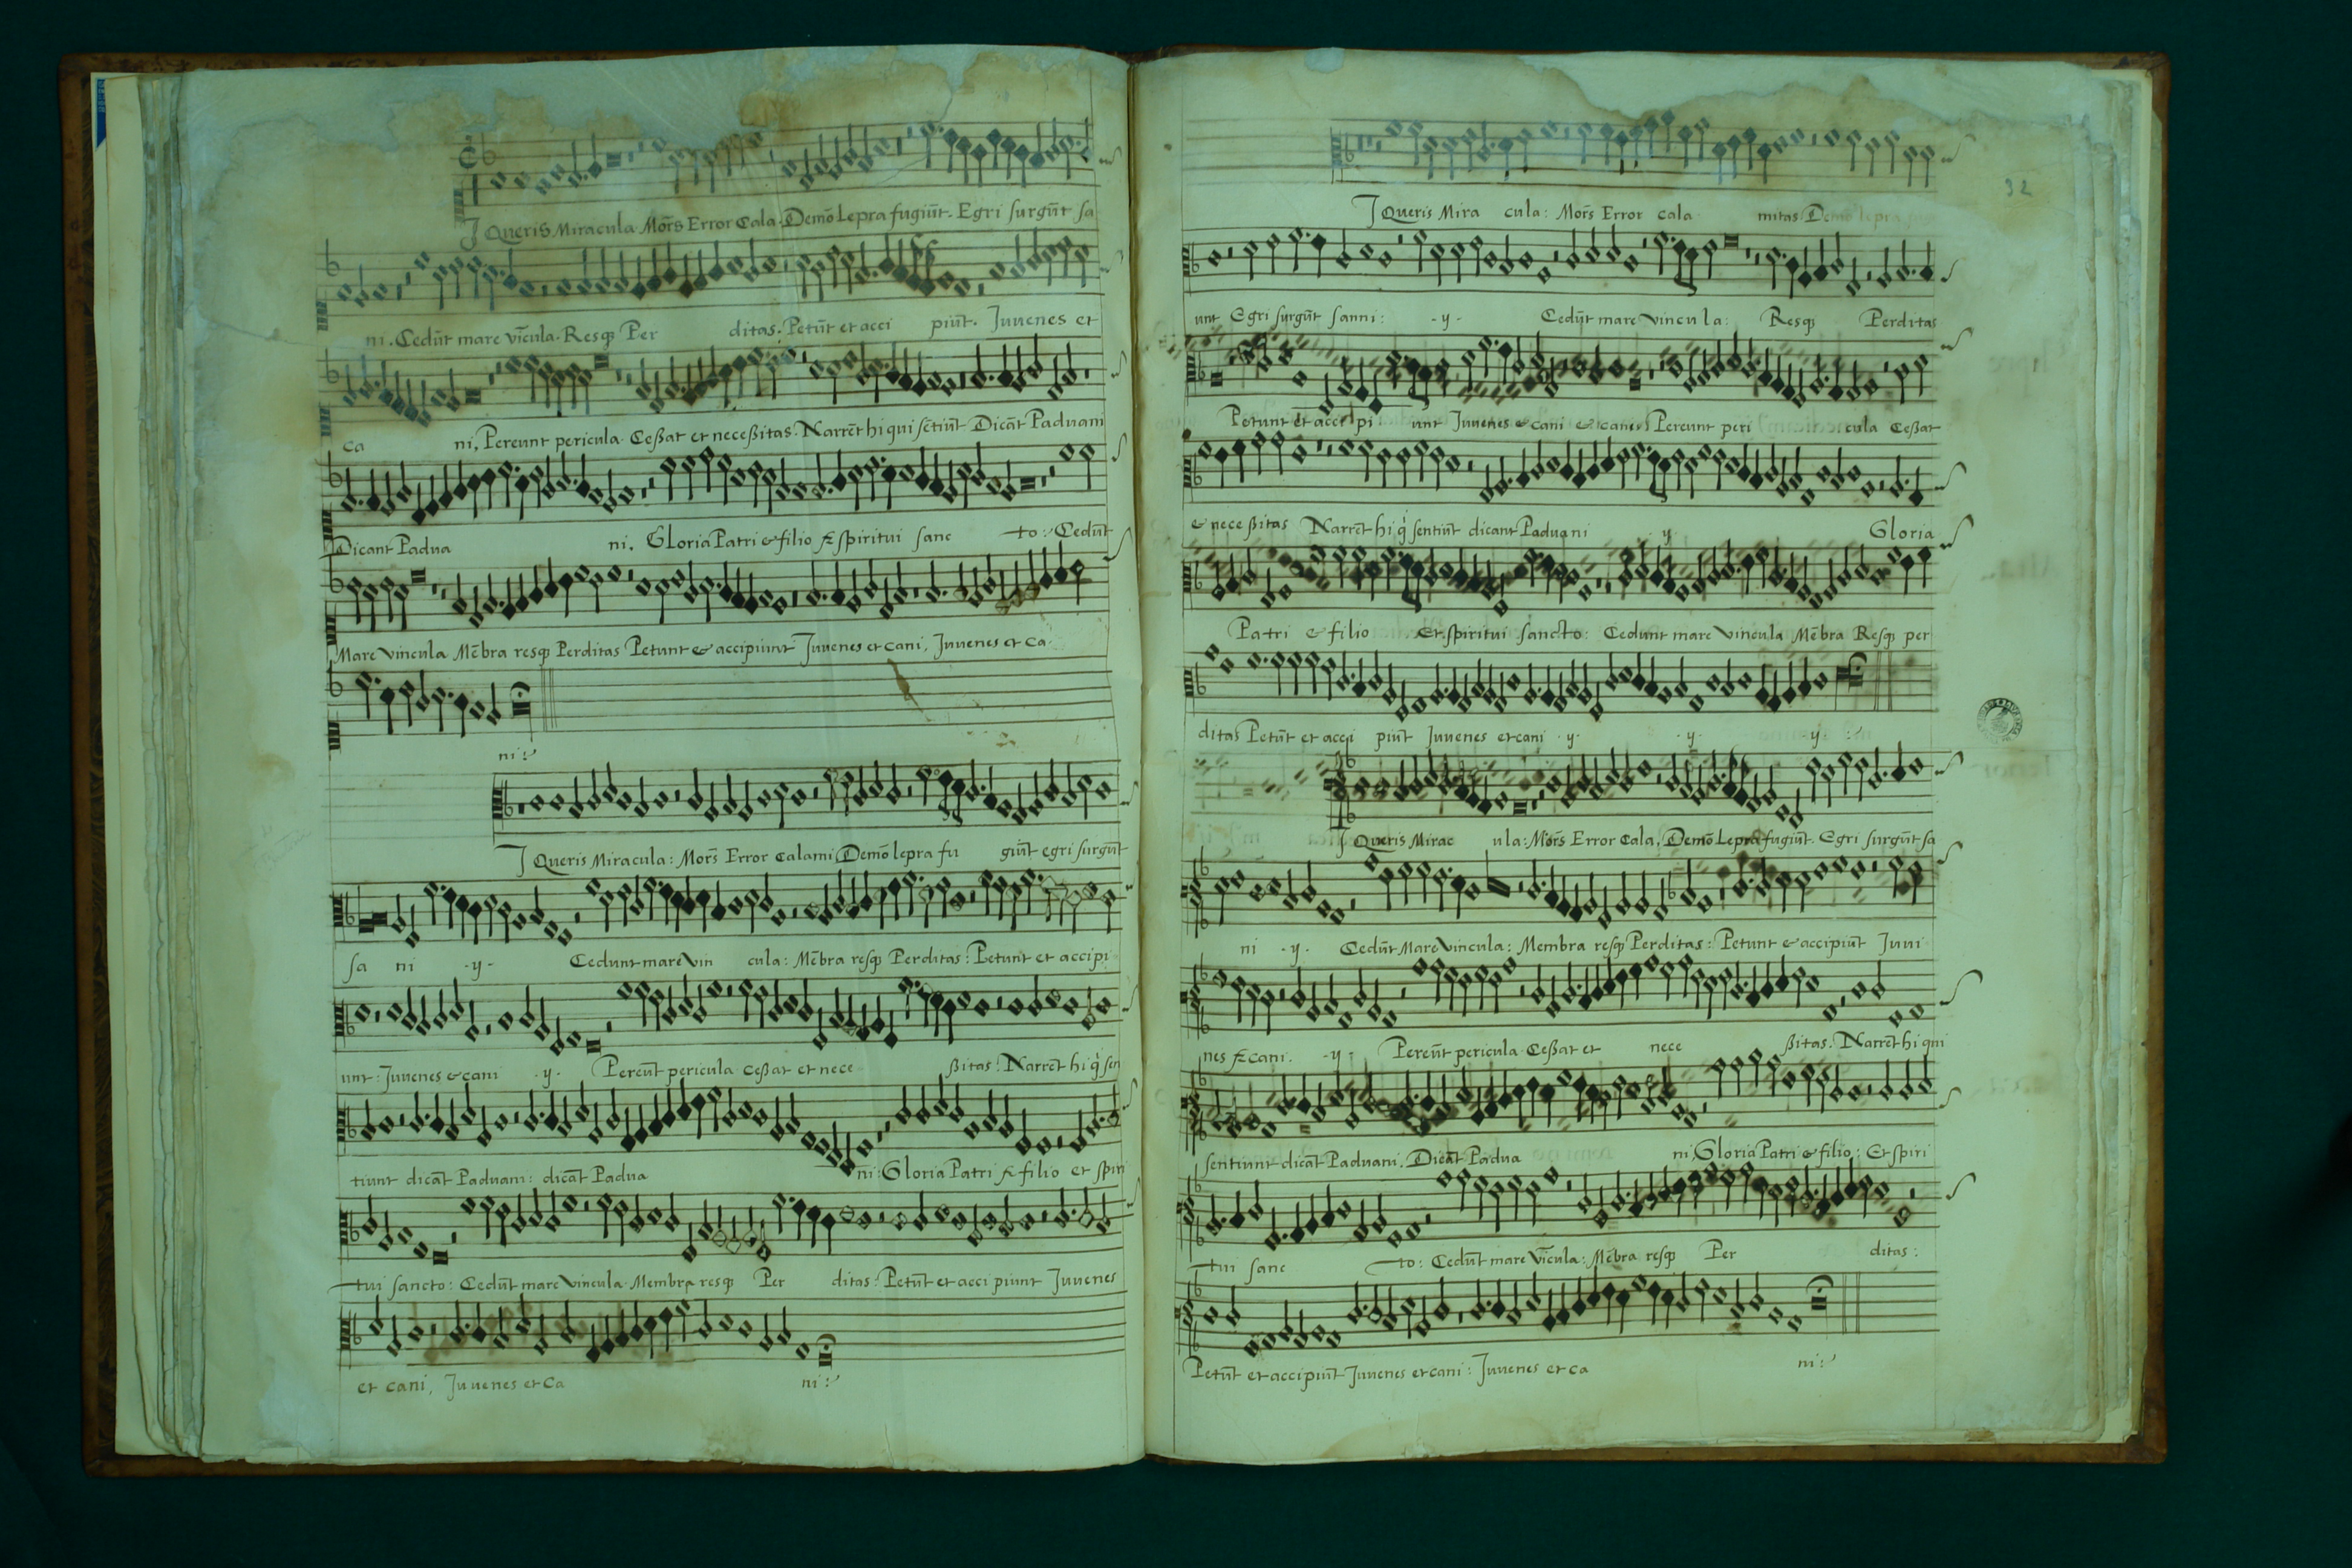 J Queris Miracula. Mor̃s Error Cala. Demõ Lepra fugiũt. Egri surgũt sa
ni. Cedũt mare vĩcula. Resq3 Per ditas. Petũt et acci piũt. Juvenes et
ca ni. Pereunt pericula. Ceßat et neceßitas. Narrẽt hi qui sẽtiũt Dicãt Paduani
Dicant Padua ni. Gloria Patri & filio & spiritui sanc to: Cedũt
Mare vincula Mẽbra resq3 Perditas Petunt & accipiunt Juvenes et cani, Juvenes et ca
ni:
J Queris Miracula: Mor̃s Error Calami Demõ lepra fu giũt egri surgũt
sa ni -y- Cedunt mare vin cula: Mẽbra resq3 Perditas: Petunt et accipi
unt: Juvenes & cani -y- Pereũt pericula ceßat et nece ßitas: Narrẽt hi q̓ sen
tiunt dicãt Paduani: dicãt Padua ni: Gloria Patri & filio et spiri
tui sancto: Cedũt mare vincula. Membra resq3 Per ditas: Petũt et acci piunt Juvenes
et cani, Juvenes et ca ni:
32
J Queris Mira cula: Mor̃s Error cala mitas Demõ lepra
unt Egri surgũt sanni: -y- Cedũt mare vincula: Resq3 Perditas
Petunt et acci pi unt Juvenes & cani & cani Pereunt peri cula Ceßat
& neceßitas Narrẽt hi q̓ sentiũt dicant Paduani -y- Gloria
Patri & filio Et spiritui sancto: Cedunt mare vincula Mẽbra Resq3 per
ditas Petũt et acci piũt Juvenes et cani -y- -y- -y-
J Queris Mirac ula: Mor̃s Error Cala, Demõ Lepra fugiũt. Egri surgũt sa
ni -y- Cedũt Mare vincula: Membra resq3 Perditas: Petunt & accipiũt Juui
nes & cani. -y- Pereũt pericula. Ceßat et nece ßitas: Narrẽt hi qui
sentiunt dicãt Paduani. Dicãt Padua ni, Gloria Patri & filio: Et spiri
tui sanc to: Cedũt mare vĩcula: Mẽbra resq3 Per ditas:
Petũt et accipiũt Juvenes et cani: Juvenes et ca ni: